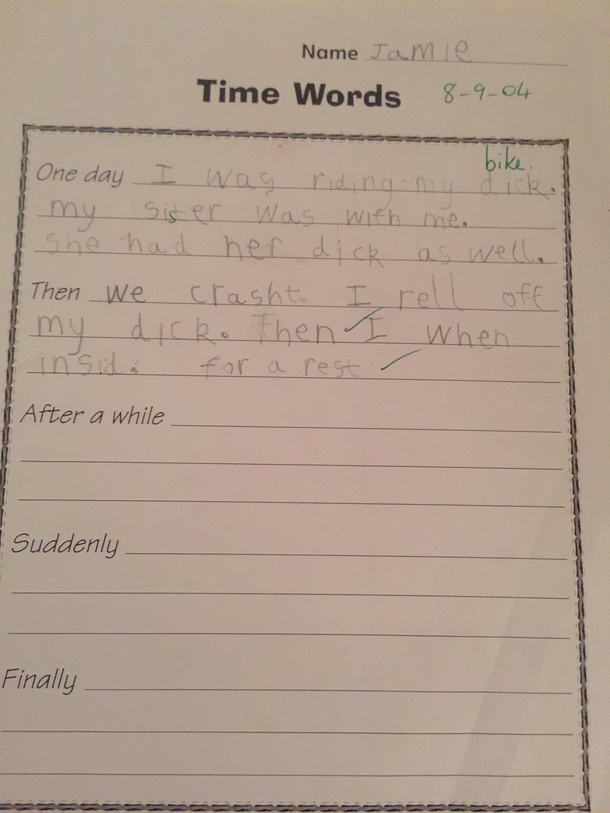 Name Jamie
Time Words 8-9-04
bike.
One day I was riding my dick.
my sister was with me.
She had her dick as well.
Then we crasht. I rell off
my dick. Then I when
insid. for a rest
After a while
Suddenly
Finally